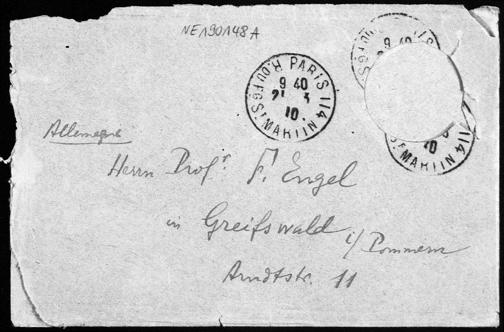 NE190148A
PARIS 114
R. DU FG ST MARTIN
9 40
21 - 3
10.
ST MARTIN
114
10
Allemagne
Herrn Prof. F. Engel
in Greifswald i/Pommern
Arndtstr. 11